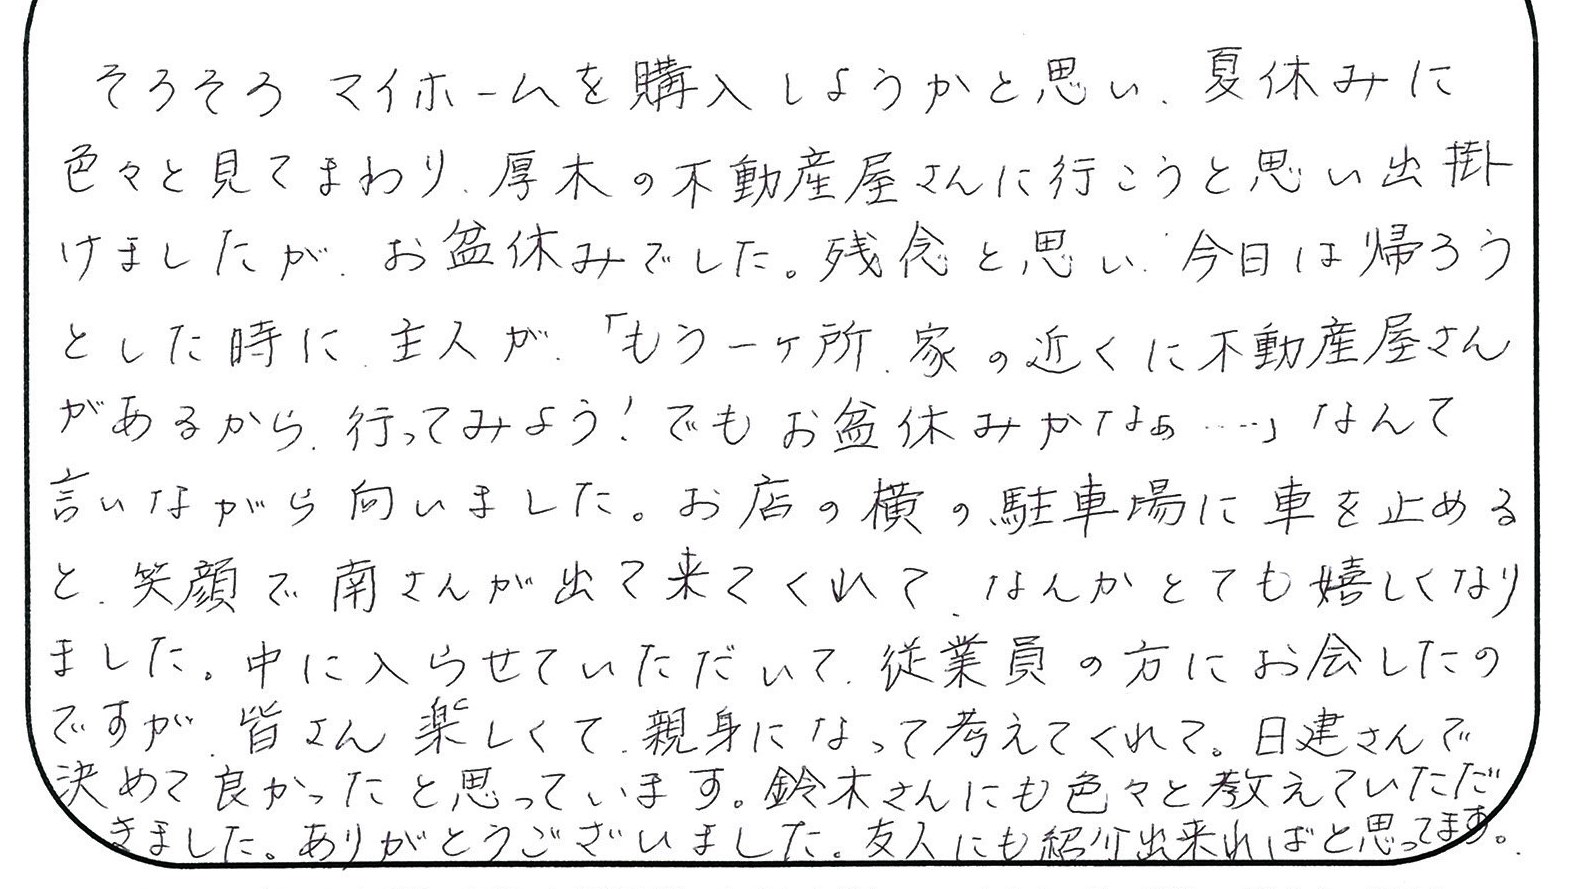 そろそろ マイホームを購入しようかと思い、夏休みに
色々と見てまわり、厚木の不動産屋さんに行こうと思い出掛
けましたが、お盆休みでした。残念と思い、今日は帰ろう
とした時に、主人が、「もう一ヶ所、家の近くに不動産屋さん
があるから、行ってみよう！でもお盆休みかなぁ……」なんて
言いながら向いました。お店の横の駐車場に車を止める
と、笑顔で南さんが出て来てくれて、なんかとても嬉しくなり
ました。中に入らせていただいて、従業員の方にお会したの
ですが、皆さん楽しくて、親身になって考えてくれて。日建さんで
決めて良かったと思っています。鈴木さんにも色々と教えていただ
きました。ありがとうございました。友人にも紹介出来ればと思ってます。